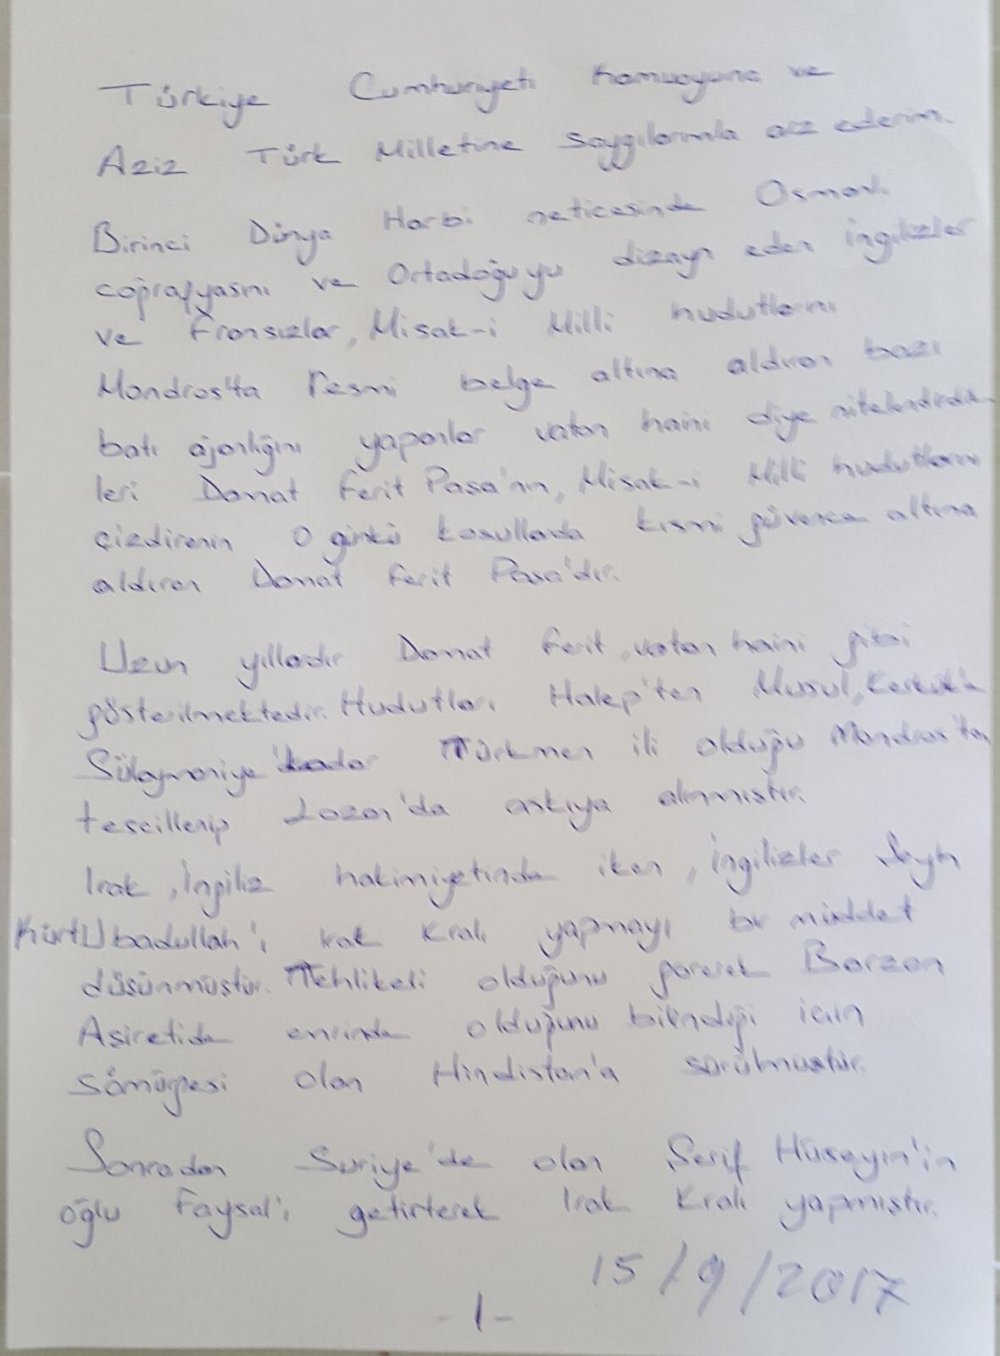 Türkiye Cumhuriyeti Kamuoyuna ve
Aziz Türk Milletine saygılarımla arz ederim.
Birinci Dünya Harbi neticesinde Osmanlı
coğrafyasını ve Ortadoğuyu dizayn eden İngilizler
ve Fransızlar, Misak-i Milli hudutlarını
Mondros'ta resmi belge altına aldıran bazı
batı ajanlığını yapanlar vatan haini diye nitelendirdik
leri Damat Ferit Paşa'nın, Misak-i Milli hudutlarını
çizdirenin O günkü koşullarda kısmi güvence altına
aldıran Damat Ferit Paşa'dır.
Uzun yıllardır Damat Ferit, vatan haini gibi
gösterilmektedir. Hudutları Halep'ten Musul, Kerkük'e
Süleymaniye'kadar Türkmen ili olduğu Mondros'tan
tescillenip Lozan'da askıya alınmıştır.
Irak, İngiliz hakimiyetinde iken, İngilizler Şeyh
Kürt Ubadullah'ı Irak Kralı yapmayı bir müddet
düşünmüştür. Tehlikeli olduğunu görerek Barzan
Aşiretide emrinde olduğunu bilindiği için
sömürgesi olan Hindistan'a sürülmüştür.
Sonradan Suriye'de olan Şerif Hüseyin'in
oğlu Faysal'ı getirterek Irak Kralı yapmıştır.
15/9/2017
-1-